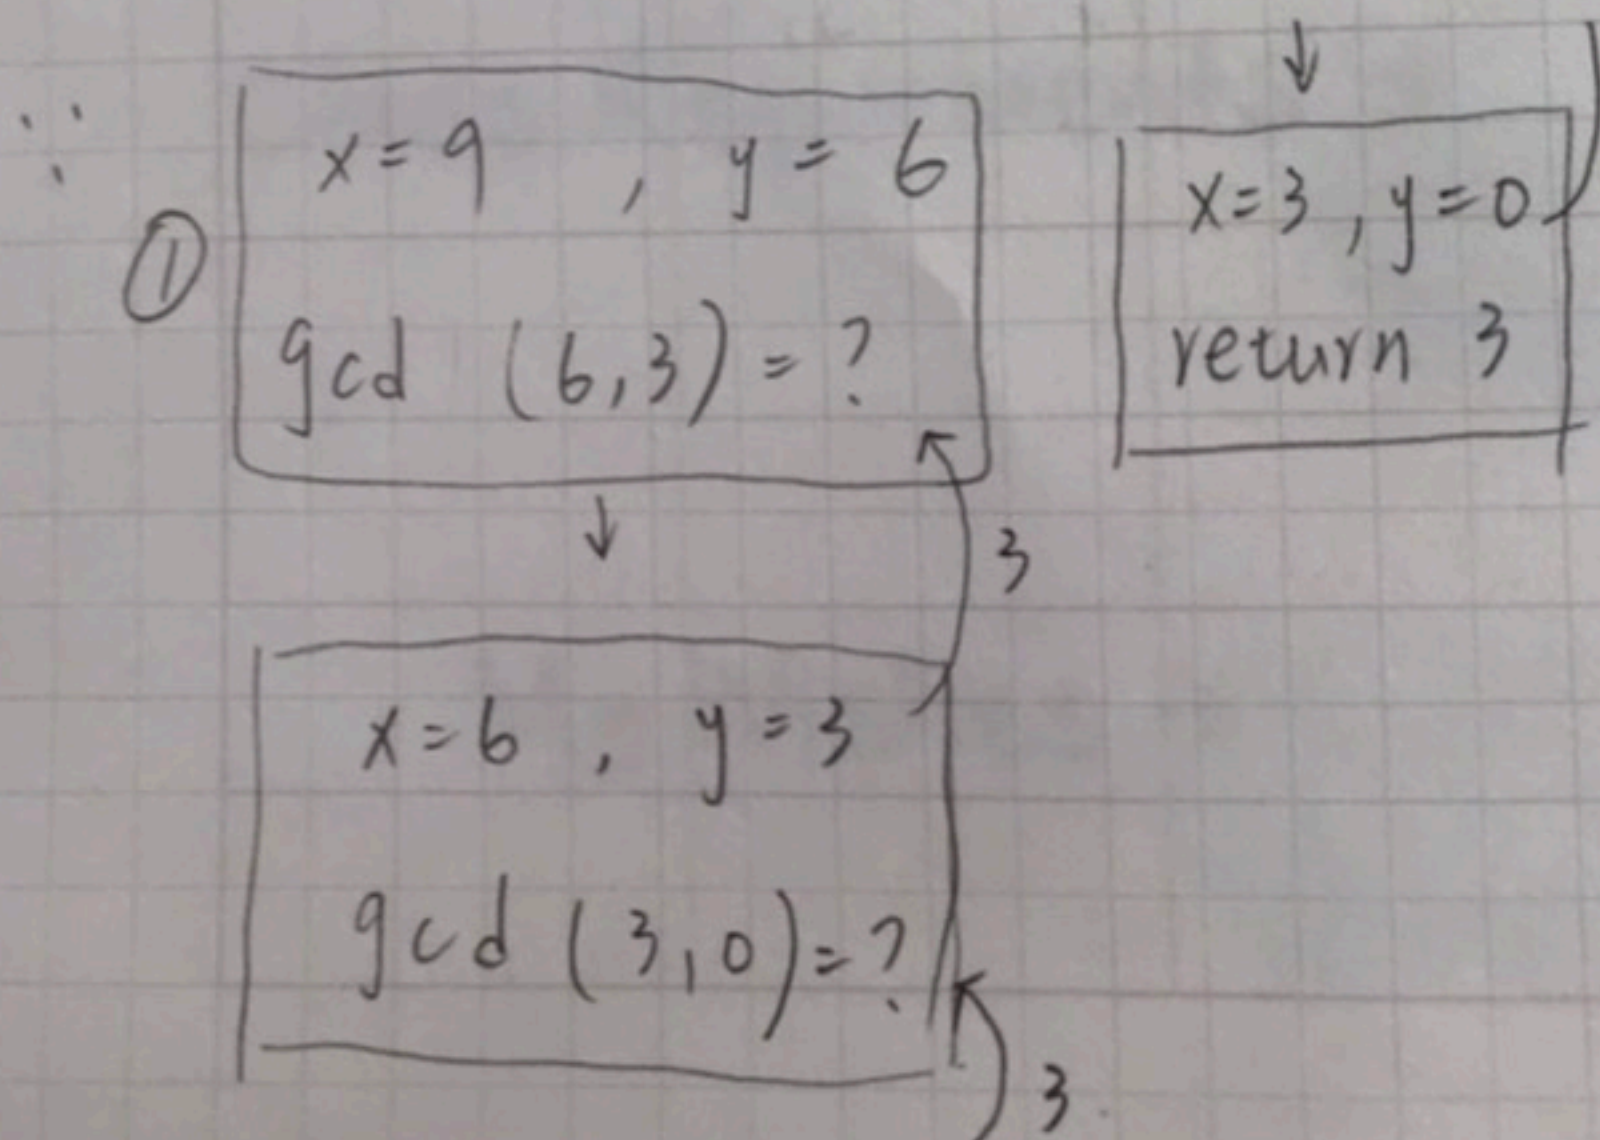 ∵
①
x=9 , y=6
gcd (6,3)=?
↓
3
x=6 , y=3
gcd (3,0)=?
3
↓
x=3, y=0
return 3